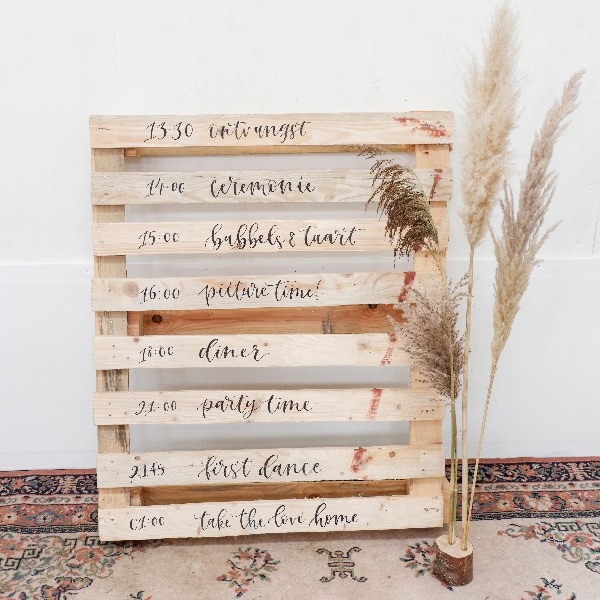 13:30 ontvangst
14:00 ceremonie
15:00 bubbels & taart
16:00 picture time!
18:00 diner
21:00 party time
21:45 first dance
01:00 take the love home